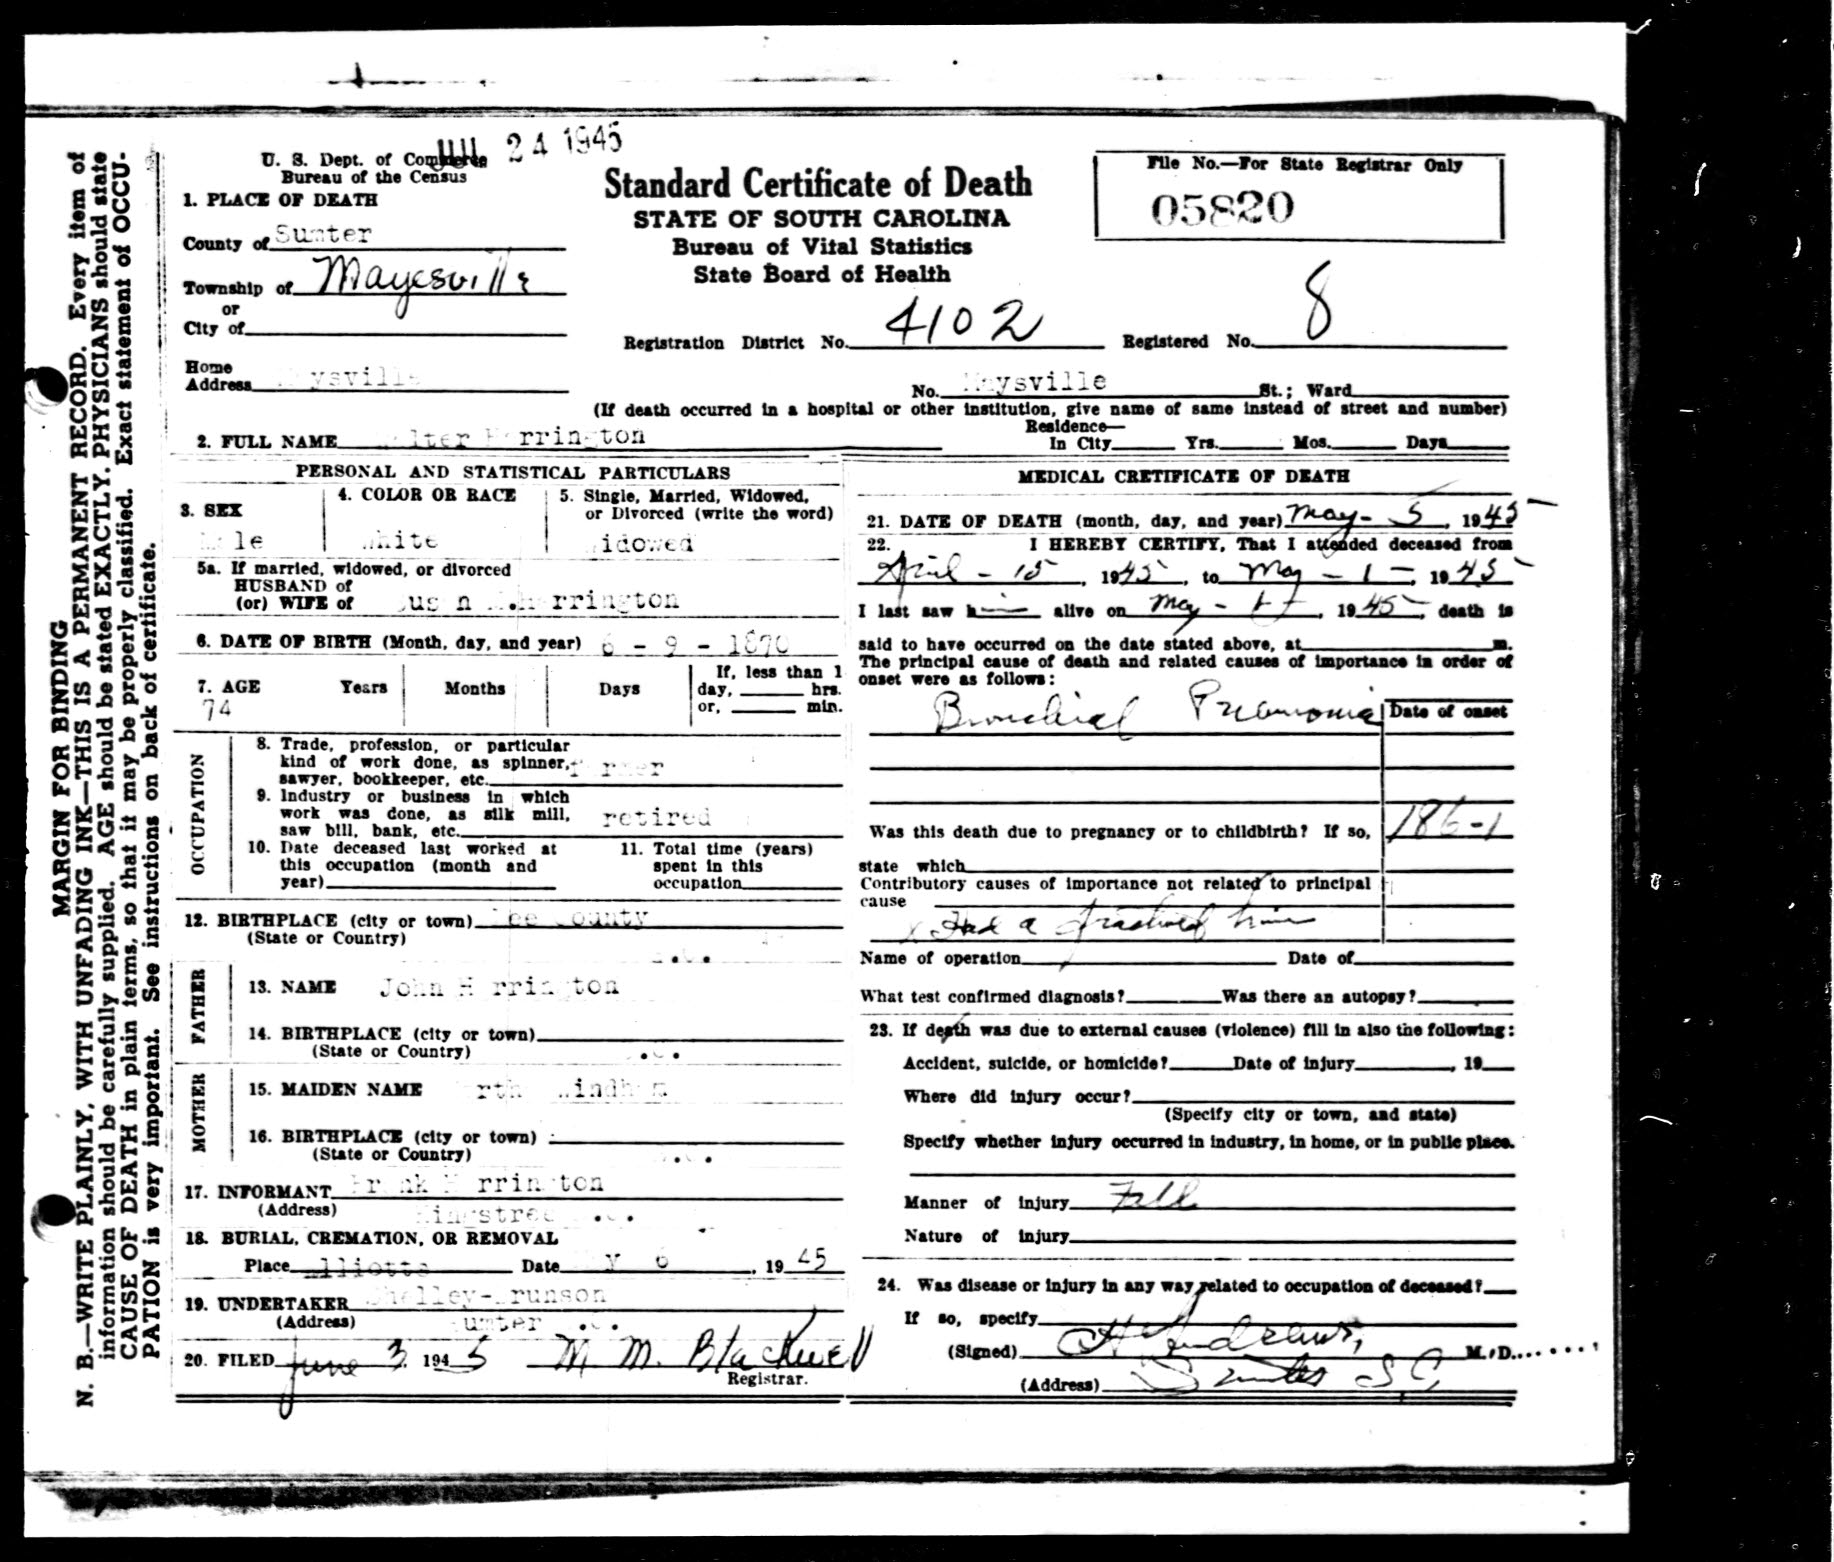 MARGIN FOR BINDING
N. B.—WRITE PLAINLY, WITH UNFADING INK—THIS IS A PERMANENT RECORD. Every item of
information should be carefully supplied. AGE should be stated EXACTLY. PHYSICIANS should state
CAUSE OF DEATH in plain terms, so that it may be properly classified. Exact statement of OCCU-
PATION is very important. See instructions on back of certificate.
U. S. Dept. of Commerce
Bureau of the Census
24 1945
Standard Certificate of Death
STATE OF SOUTH CAROLINA
Bureau of Vital Statistics
State Board of Health
File No.—For State Registrar Only
05820
1. PLACE OF DEATH
County of Sumter
Township of Mayesville
or
City of
Registration District No. 4102 Registered No. 8
Home
Address Maysville
No. Maysville St.; Ward
(If death occurred in a hospital or other institution, give name of same instead of street and number)
2. FULL NAME Walter Harrington
Residence—
In City Yrs. Mos. Days
PERSONAL AND STATISTICAL PARTICULARS
3. SEX
Male
4. COLOR OR RACE
White
5. Single, Married, Widowed,
or Divorced (write the word)
Widowed
5a. If married, widowed, or divorced
HUSBAND of
(or) WIFE of Harrington
6. DATE OF BIRTH (Month, day, and year) 6 - 9 - 1870
7. AGE Years Months Days
If, less than 1
day, hrs.
or, min.
74
OCCUPATION
8. Trade, profession, or particular
kind of work done, as spinner,
sawyer, bookkeeper, etc. farmer
9. Industry or business in which
work was done, as silk mill,
saw bill, bank, etc. retired
10. Date deceased last worked at
this occupation (month and
year)
11. Total time (years)
spent in this
occupation
12. BIRTHPLACE (city or town) Lee County
(State or Country) S.C.
FATHER
13. NAME John Harrington
14. BIRTHPLACE (city or town)
(State or Country) S.C.
MOTHER
15. MAIDEN NAME Windham
16. BIRTHPLACE (city or town)
(State or Country) S.C.
17. INFORMANT Frank Harrington
(Address) Kingstree S.C.
18. BURIAL, CREMATION, OR REMOVAL
Place Elliotts Date May 6, 1945
19. UNDERTAKER Shelley-Brunson
(Address) Sumter S.C.
20. FILED June 3, 1945 M. M. Blackwell
Registrar.
MEDICAL CRETIFICATE OF DEATH
21. DATE OF DEATH (month, day, and year) May - 5, 1945
22. I HEREBY CERTIFY, That I attended deceased from
April - 15, 1945, to May - 1 -, 1945
I last saw him alive on May - 1, 1945 death is
said to have occurred on the date stated above, at m.
The principal cause of death and related causes of importance in order of
onset were as follows:
Bronchial Pneumonia
Date of onset
Was this death due to pregnancy or to childbirth? If so, 186-1
state which
Contributory causes of importance not related to principal
cause
Had a fractured
Name of operation Date of
What test confirmed diagnosis? Was there an autopsy?
23. If death was due to external causes (violence) fill in also the following:
Accident, suicide, or homicide? Date of injury , 19
Where did injury occur?
(Specify city or town, and state)
Specify whether injury occurred in industry, in home, or in public place.
Manner of injury Fall
Nature of injury
24. Was disease or injury in any way related to occupation of deceased?
If so, specify
(Signed) Andrews, M.D.
(Address) Sumter S.C.